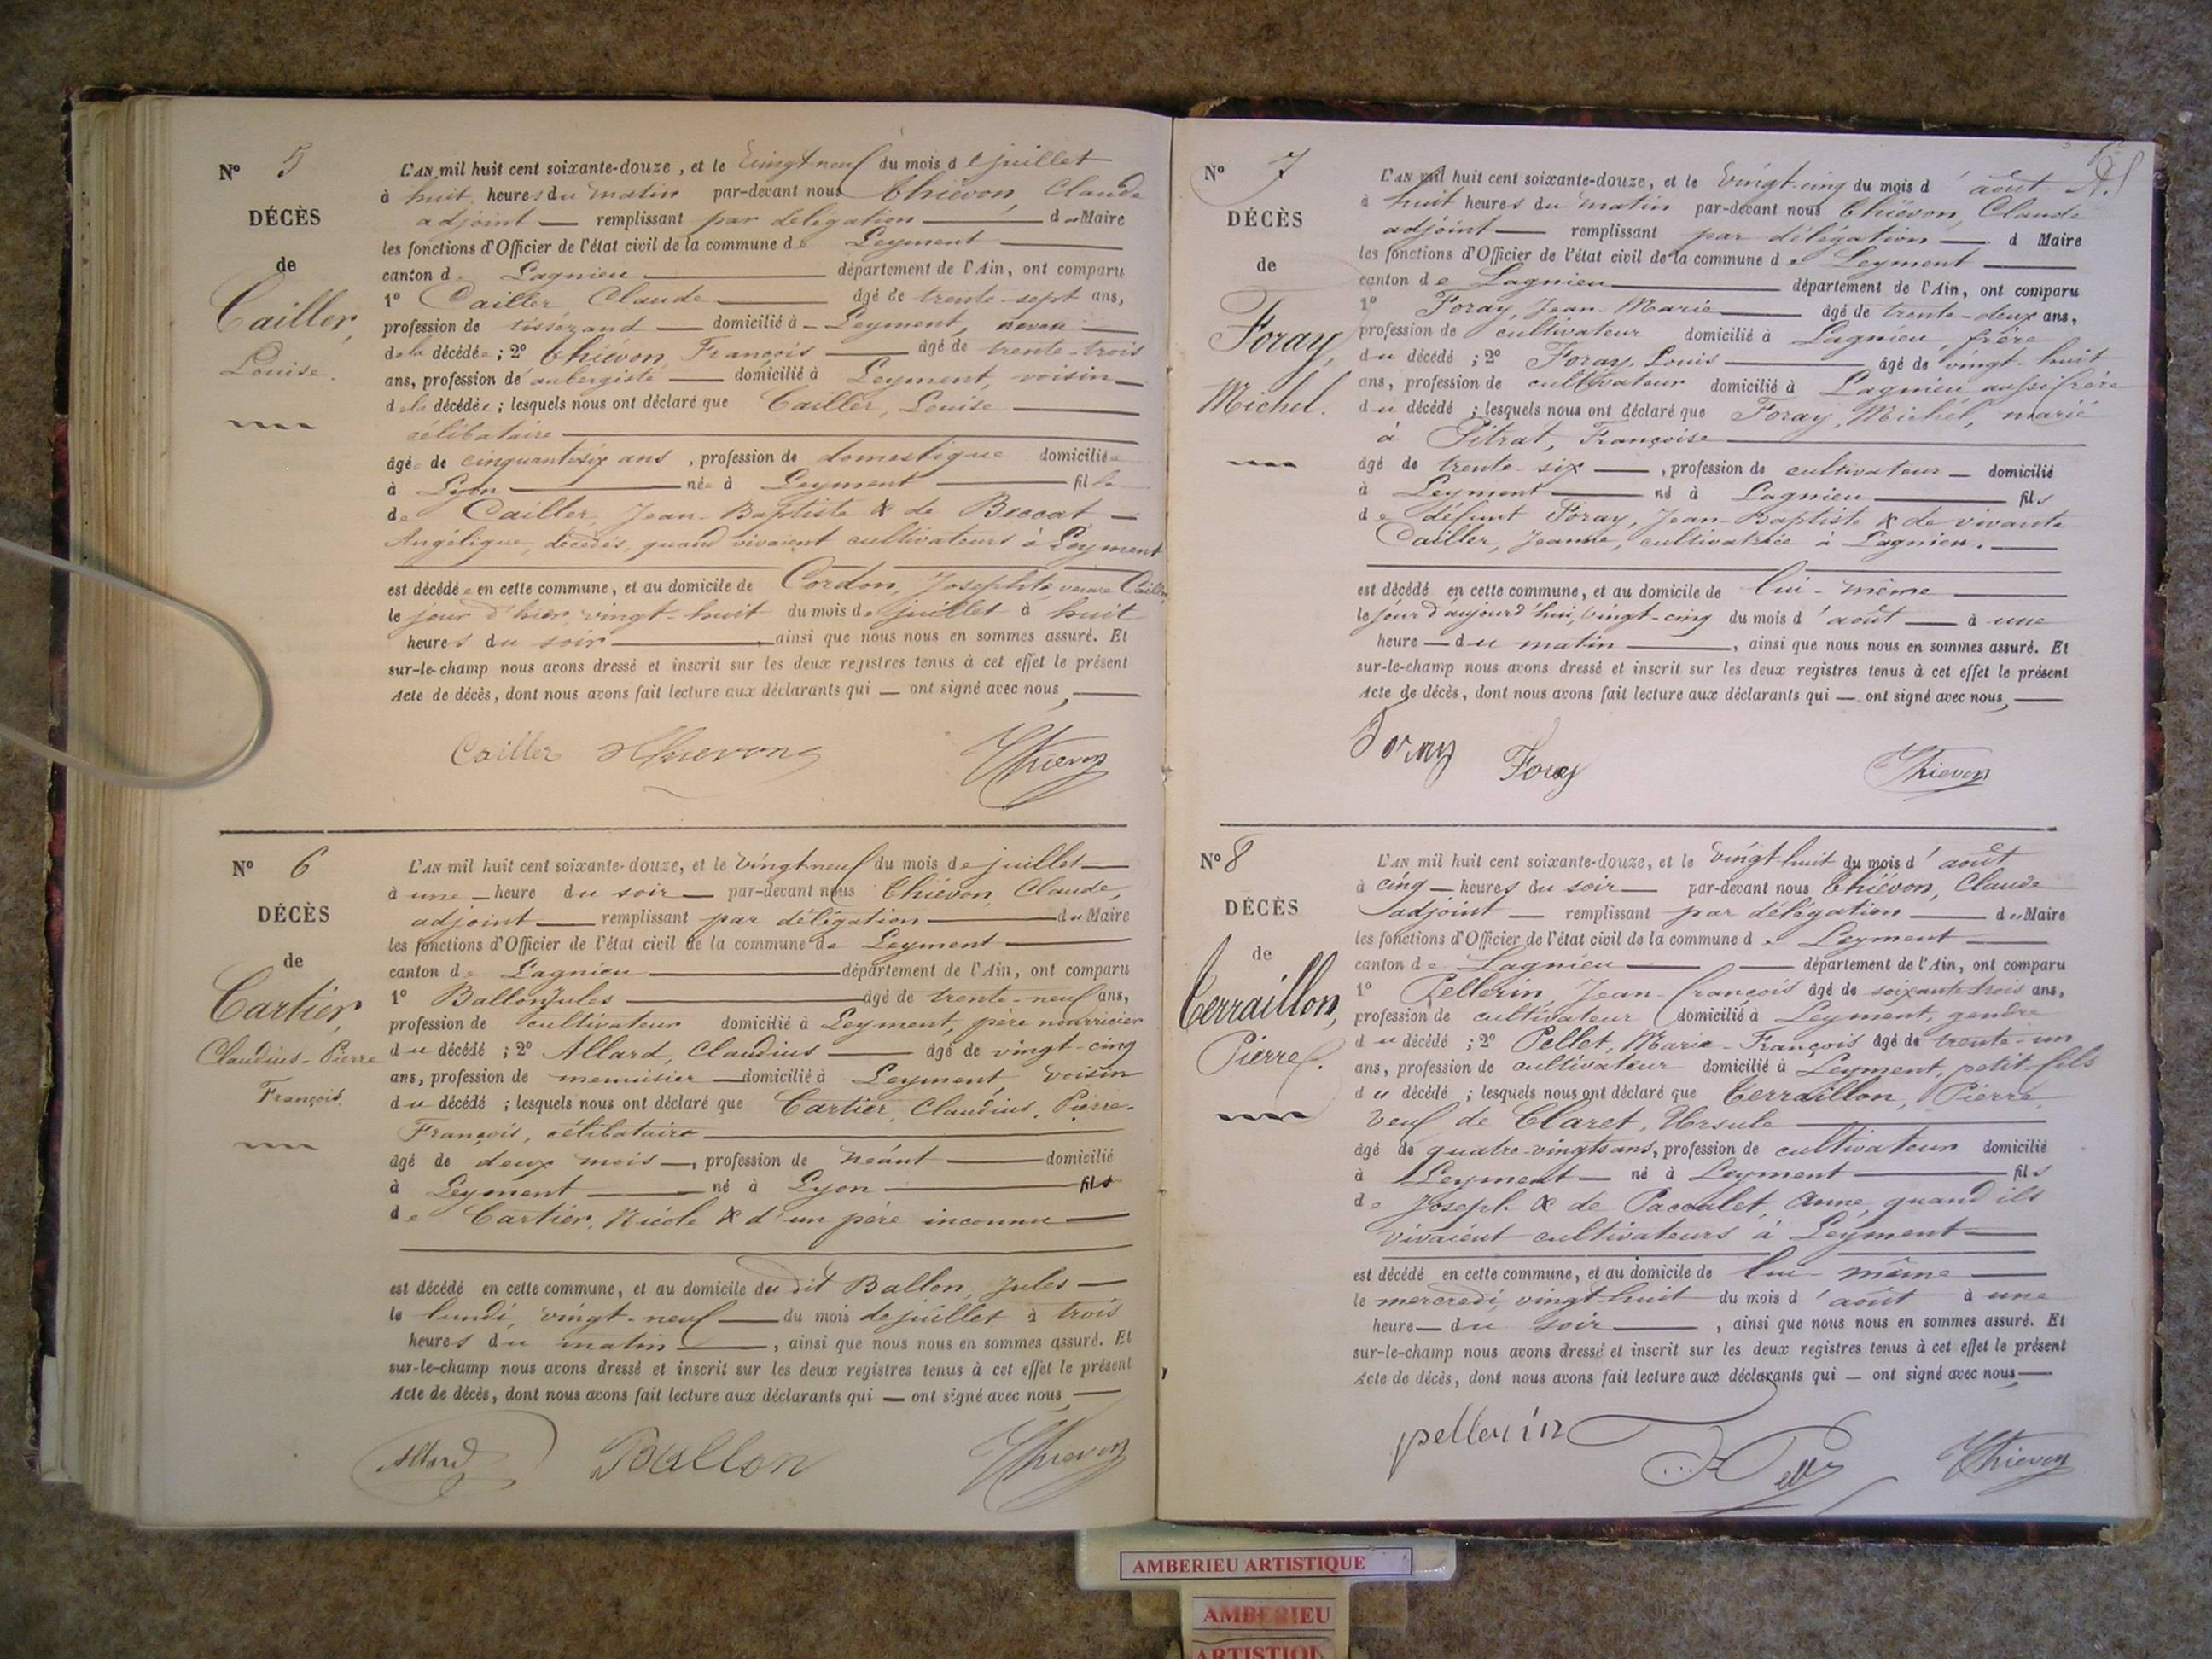 N° 5
DÉCÈS
de
Cailler,
Louise.
L'AN mil huit cent soixante-douze, et le Vingt neuf du mois de juillet
à huit heures du matin par-devant nous Chiévon, Claude
adjoint remplissant par délégation du Maire
les fonctions d'Officier de l'état civil de la commune de Leyment
canton de Lagnieu département de l'Ain, ont comparu
1° Cailler Claude âgé de trente-sept ans,
profession de tisserand domicilié à Leyment, neveu
de la décédée; 2° Chiévon, François âgé de trente-trois
ans, profession de aubergiste domicilié à Leyment, voisin
de la décédée; lesquels nous ont déclaré que Cailler, Louise
célibataire
âgée de cinquante six ans, profession de domestique domiciliée
à Lyon née à Leyment fille
de Cailler, Jean-Baptiste & de Beccat
Angélique, décédés, quand vivaient cultivateurs à Leyment
est décédée en cette commune, et au domicile de Cordon, Josephte veuve Cailler
le jour d'hier, vingt-huit du mois de juillet à huit
heures du soir ainsi que nous nous en sommes assuré. Et
sur-le-champ nous avons dressé et inscrit sur les deux registres tenus à cet effet le présent
Acte de décès, dont nous avons fait lecture aux déclarants qui — ont signé avec nous,
Cailler Thievon Thievon
N° 6
DÉCÈS
de
Cartier,
Claudius-Pierre
François.
L'AN mil huit cent soixante-douze, et le vingt neuf du mois de juillet
à une heure du soir par-devant nous Chiévon, Claude,
adjoint remplissant par délégation du Maire
les fonctions d'Officier de l'état civil de la commune de Leyment
canton de Lagnieu département de l'Ain, ont comparu
1° Ballon Jules âgé de trente-neuf ans,
profession de cultivateur domicilié à Leyment, père nourricier
du décédé; 2° Allard, Claudius âgé de vingt-cinq
ans, profession de menuisier domicilié à Leyment, voisin
du décédé; lesquels nous ont déclaré que Cartier, Claudius, Pierre-
François, célibataire
âgé de deux mois, profession de néant domicilié
à Leyment né à Lyon fils
de Cartier, Nicole & d'un père inconnu
est décédé en cette commune, et au domicile du dit Ballon, Jules
le lundi, vingt-neuf du mois de juillet à trois
heures du matin, ainsi que nous nous en sommes assuré. Et
sur-le-champ nous avons dressé et inscrit sur les deux registres tenus à cet effet le présent
Acte de décès, dont nous avons fait lecture aux déclarants qui — ont signé avec nous
Allard Ballon Thievon
N° 7
DÉCÈS
de
Foray,
Michel.
L'AN mil huit cent soixante-douze, et le Vingt-cinq du mois d'août
à huit heures du matin par-devant nous Chiévon, Claude
adjoint remplissant par délégation d Maire
les fonctions d'Officier de l'état civil de la commune de Leyment
canton de Lagnieu département de l'Ain, ont comparu
1° Foray, Jean-Marie âgé de trente-deux ans,
profession de cultivateur domicilié à Lagnieu, frère
du décédé; 2° Foray, Louis âgé de vingt-huit
ans, profession de cultivateur domicilié à Lagnieu aussi frère
du décédé; lesquels nous ont déclaré que Foray, Michel, marié
à Pitrat, Françoise
âgé de trente-six, profession de cultivateur domicilié
à Leyment né à Lagnieu fils
de défunt Foray, Jean-Baptiste & de vivante
Cailler, Jeanne, cultivatrice à Lagnieu.
est décédé en cette commune, et au domicile de lui-même
le jour d'aujourd'hui, vingt-cinq du mois d'août à une
heure du matin, ainsi que nous nous en sommes assuré. Et
sur-le-champ nous avons dressé et inscrit sur les deux registres tenus à cet effet le présent
Acte de décès, dont nous avons fait lecture aux déclarants qui — ont signé avec nous,
Foray Foray Thievon
N° 8
DÉCÈS
de
Terraillon,
Pierre.
L'AN mil huit cent soixante-douze, et le vingt huit du mois d'août
à cinq heures du soir par-devant nous Chiévon, Claude
adjoint remplissant par délégation du Maire
les fonctions d'Officier de l'état civil de la commune de Leyment
canton de Lagnieu département de l'Ain, ont comparu
1° Pellerin Jean-François âgé de soixante trois ans,
profession de cultivateur domicilié à Leyment, gendre
du décédé; 2° Pellet, Marie-François âgé de trente-un
ans, profession de cultivateur domicilié à Leyment, petit-fils
du décédé; lesquels nous ont déclaré que Terraillon, Pierre
veuf de Claret, Ursule
âgé de quatre-vingts ans, profession de cultivateur domicilié
à Leyment né à Leyment fils
de Joseph & de Paccalet, Anne, quand ils
vivaient cultivateurs à Leyment
est décédé en cette commune, et au domicile de lui-même
le mercredi, vingt-huit du mois d'août à une
heure du soir, ainsi que nous nous en sommes assuré. Et
sur-le-champ nous avons dressé et inscrit sur les deux registres tenus à cet effet le présent
Acte de décès, dont nous avons fait lecture aux déclarants qui — ont signé avec nous,
pellerin Thievon
AMBERIEU ARTISTIQUE
AMBERIEU
ARTISTIQU